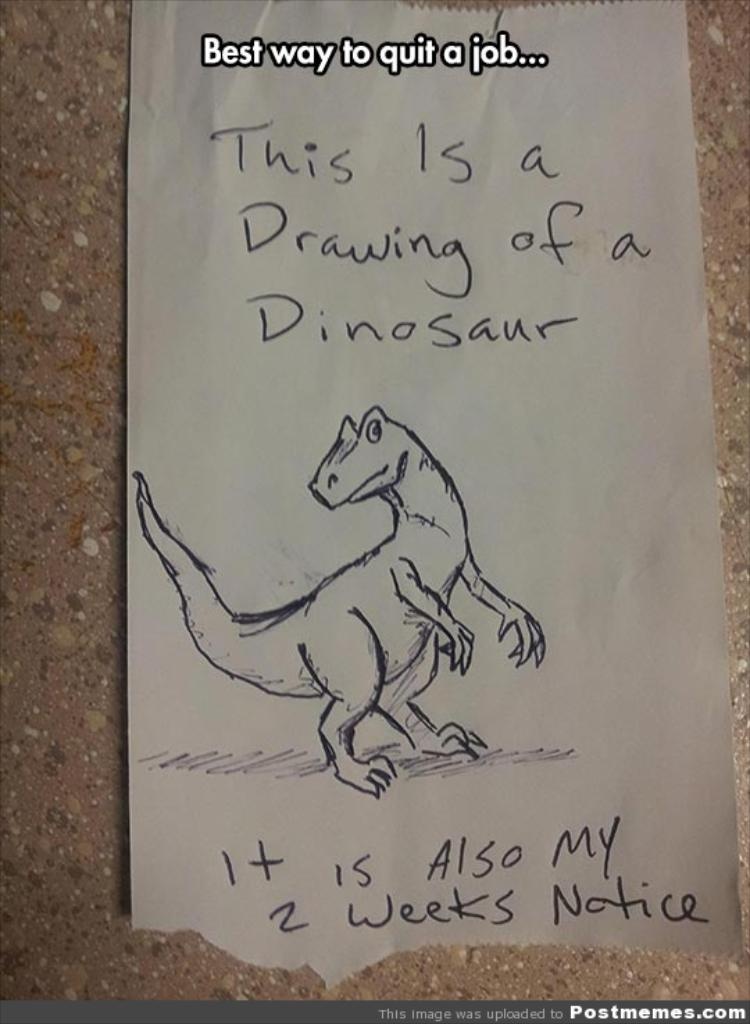 Best way to quit a job...
This Is a
Drawing of a
Dinosaur
It is Also My
2 Weeks Notice
This image was uploaded to Postmemes.com